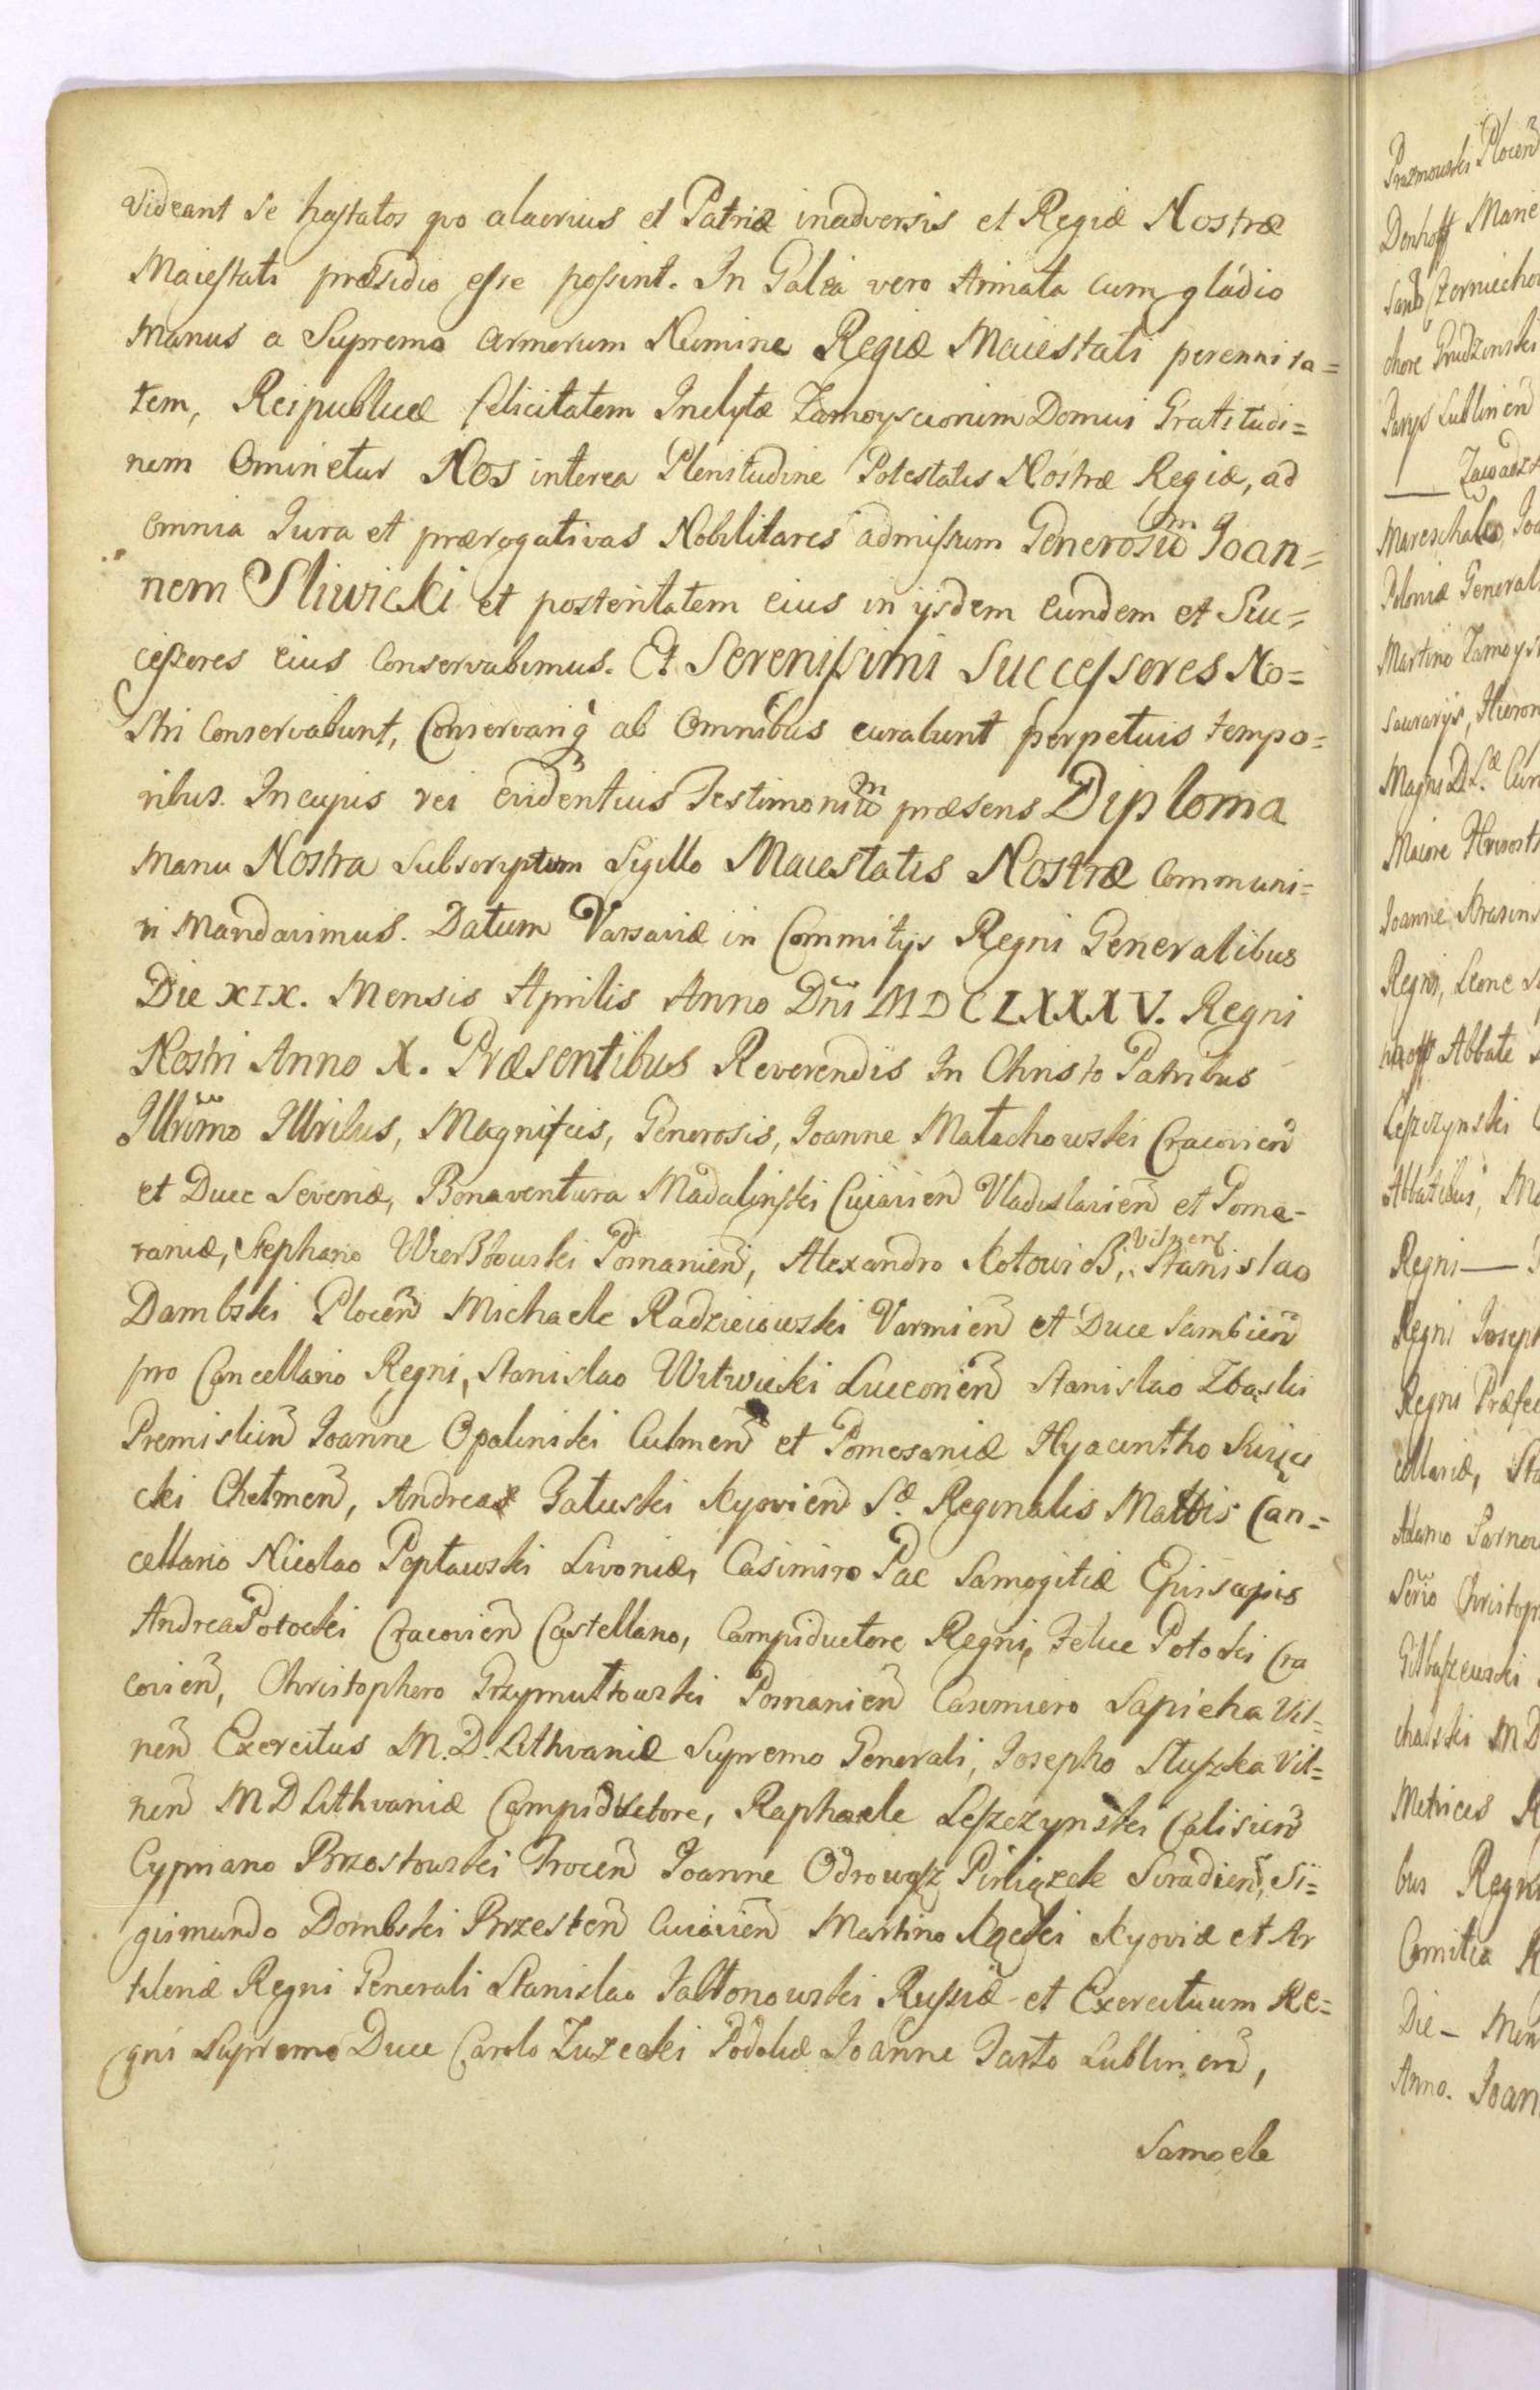 videant se hastatos quo alacrius et Patriæ in adversis et Regiæ Nostræ
Maiestati præsidio esse possint. In Galea vero Armata cum gládio
manus a Supremo armorum Numine Regiæ Maiestati perennita=
tem, Reipublicæ felicitatem Inclytæ Zamoyscionum Domui Gratitudi=
nem Ominetur Nos interea Plenitudine Potestatis Nostræ Regiæ, ad
omnia Iura et prærogativas Nobilitares admissum Generosum Joan=
nem Sliwicki et posteritatem eius in ijsdem eundem et Suc=
cessores eius Conservabimus. Et Serenissimi Successores No=
stri Conservabunt, Conservariq̀ ab Omnibus curabunt perpetuis tempo=
ribus. In cujus rei evidentius Testimonium præsens Diploma
Manu Nostra Subscriptum Sigillo Maiestatis Nostræ Communi=
ri Mandavimus. Datum Varsaviæ in Commitijs Regni Generalibus
Die XIX. Mensis Aprilis Anno Dñi MDCLXXXV. Regni
Nostri Anno X. Præsentibus Reverendis In Christo Patribus
Illrimo Illribus, Magnificis, Generosis, Joanne Małachowski Cracovien̄
et Duce Severiæ, Bonaventura Madalinski Cuiavien̄ Vladislavien̄ et Pome-
raniæ, Stephano Wierßbowski Posnanien̄, Alexandro Kotowiß, Vilnen̄ Stanislao
Dambski Plocen̄ Michaele Radzieiowski Varmien̄ et Duce Sambien̄
pro Cancellario Regni, Stanislao Witwicki Luceorien̄ Stanislao Zbąski
Premislien̄ Joanne Opalinski Culmen̄ et Pomesaniæ Hyacintho Swięci
cki Chełmen̄, Andreas Załuski Kyovien̄ Sæ Reginalis Mattis Can=
cellario Nicolao Popławski Livoniæ, Casimiro Pac Samogitiæ Episcopis
Andrea Potocki Cracovien̄ Castellano, Campiductore Regni, Felice Potocki Cra
covien̄, Christophero Grzymułtowski Posnanien̄ Casimiero Sapieha Vil=
nen̄ Exercitus M. D. Lithvaniæ Supremo Generali, Josepho Słuszka Vil=
nen̄ M D Lithvaniæ Campiductore, Raphaele Leszczynski Calisien̄
Cypriano Brzostowski Trocen̄ Joanne Odrowąsz Pieniązek Siradien̄, Si=
gismundo Dombski Brzesten̄ Cuiavien̄ Martino Kącki Kyoviæ et Ar
tileriæ Regni Generali Stanislao Jabłonowski Russiæ et Exercituum Re=
gni Supremo Duce Carolo Łużecki Podoliæ Joanne Tarło Lublinen̄,
Samoele
Prazmowski Plocen̄
Denhoff Marie
chore Grudzinski
Parys Lublinen̄
Mareschalco, Joa
Poloniæ General
Martino Zamoys
Joanne Krasins
Regni, Leone
hoff Abbate
Leszczynski
Abbatibus, Ma
Regni —
Regni Joseph
Regni Præfec
cellariæ, Sta
Adamo Sarnow
Christoph
Metrices R
bus Regni
Comitia R
Die — Men
Anno. Joan